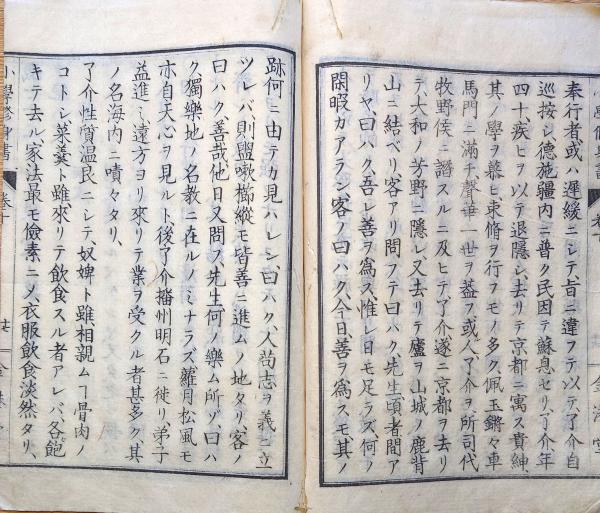 奉行者或ハ遲緩ニシテ、旨ニ違フテ、以テ、了介自
巡按シ、德施疆内ニ普ク民因テ蘇息セリ、了介年
四十、疾ヒヲ以テ退隱シ、去リテ京都ニ寓ス貴紳、
其ノ學ヲ慕ヒ束脩ヲ行フモノ多ク、佩玉鏘々車
馬門ニ滿チ聲華一世ヲ蓋フ、或人、了介ヲ所司代
牧野侯ニ譖スルニ及ヒテ了介遂ニ京都ヲ去リ
テ、大和ノ芳野ニ隱レ、又去リテ廬ヲ山城ノ鹿背
山ニ結ベリ、客アリ問フテ曰ハク、先生、頃者間ア
リヤ、曰ハク、吾レ善ヲ爲ス、惟レ日モ足ラズ、何ノ
閑暇カアラン、客ノ曰ハク、今日善ヲ爲スモ、其ノ
跡何ニ由テカ見ハレン、曰ハク、人苟志ヲ義ニ立
ツレバ、則盥嗽櫛縰モ皆善ニ進ムノ地タリ、客ノ
曰ハク、善哉、他日又問フ、先生何ノ樂ム所ゾ、曰ハ
ク獨樂地ノ名教ニ在ルノミナラズ、蘿月松風モ
亦自天心ヲ見ルト、後了介播州明石ニ徙リ、弟子
益進ミ、遠方ヨリ來リテ業ヲ受クル者甚多ク、其
ノ名海内ニ嘖々タリ、
了介性質溫良ニシテ、奴婢ト雖相親ムヿ骨肉ノ
コトシ、菜羹ト雖、來リテ飲食スル者アレバ、各飽
キテ去ル、家法最モ儉素ニメ、衣服飲食淡然タリ、
小學修身書 卷十